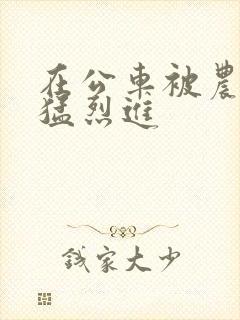 在公車被農
猛烈進
錢家大少